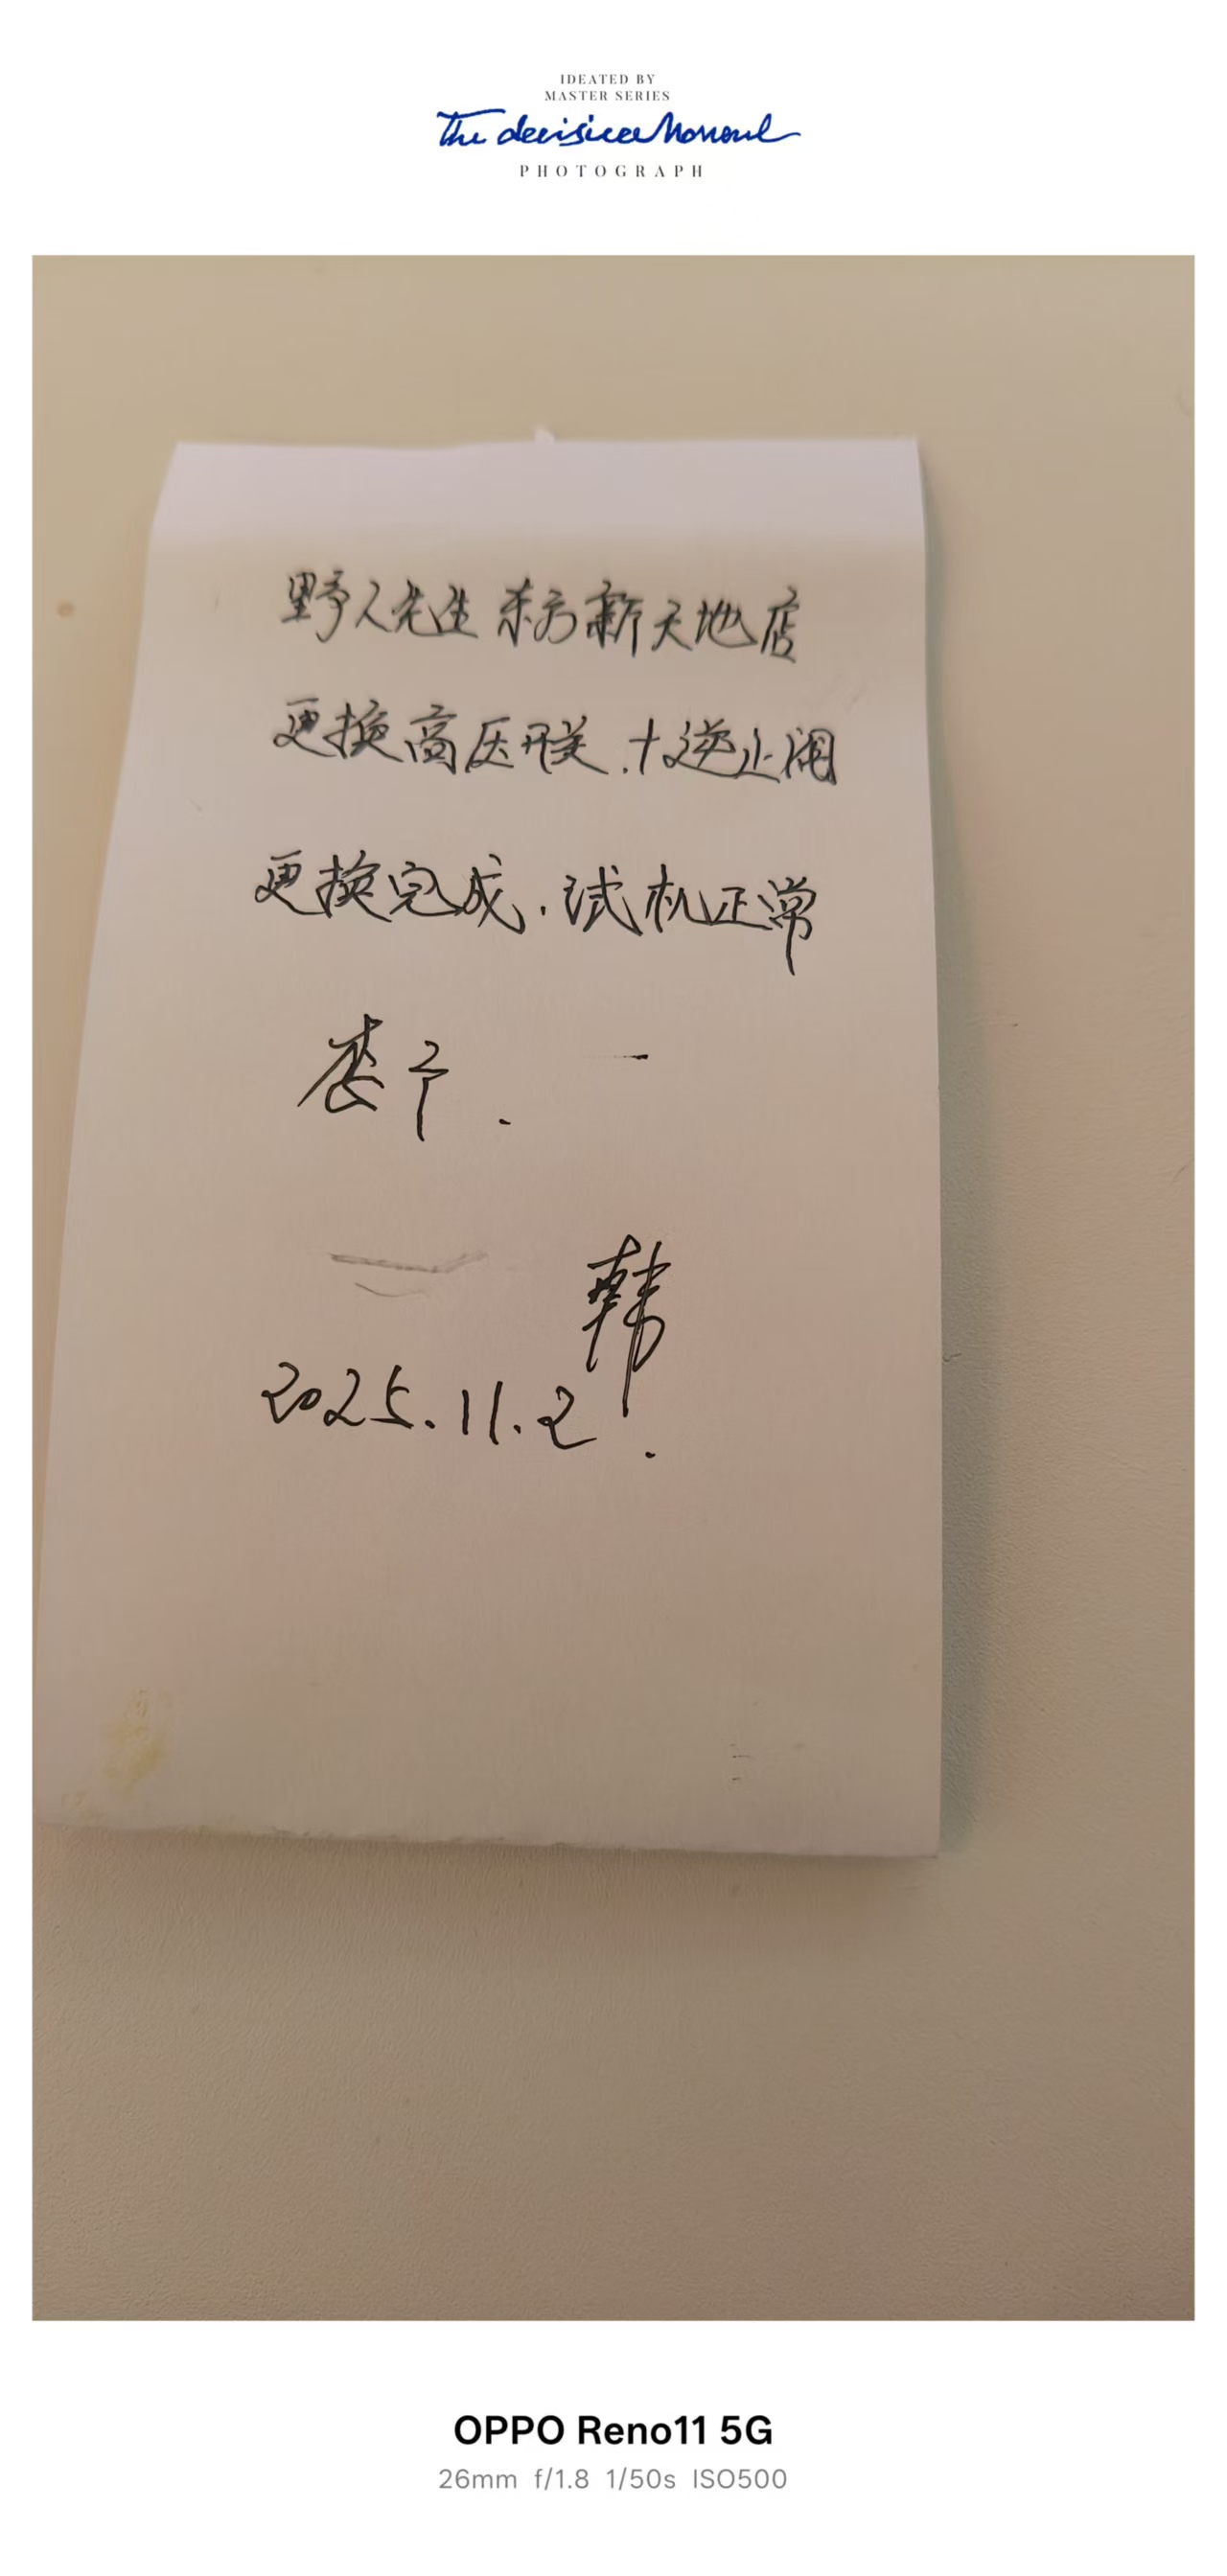 IDEATED BY
MASTER SERIES
The decisive Moment
PHOTOGRAPH
野人先生东方新天地店
更换高压开关.十逆止阀
更换完成.试机正常
娄宁.
韩
2025.11.2.
OPPO Reno11 5G
26mm f/1.8 1/50s ISO500